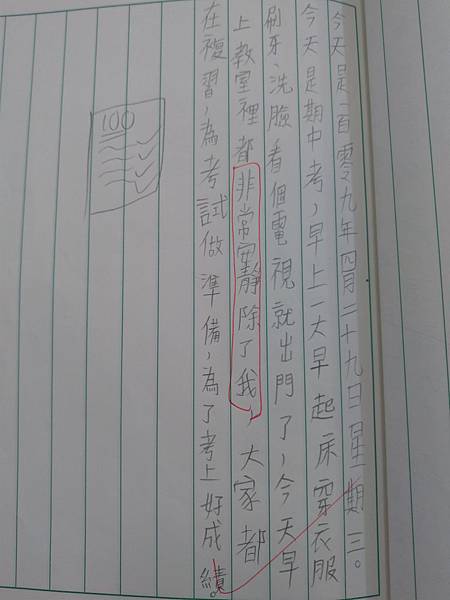 今天是一百零九年四月二十九日星期三。
今天是期中考,早上一大早起床穿衣服
刷牙、洗臉看個電視就出門了,今天早
上教室裡都非常安靜除了我,大家都
在複習,為考試做準備,為了考上好成績。
100